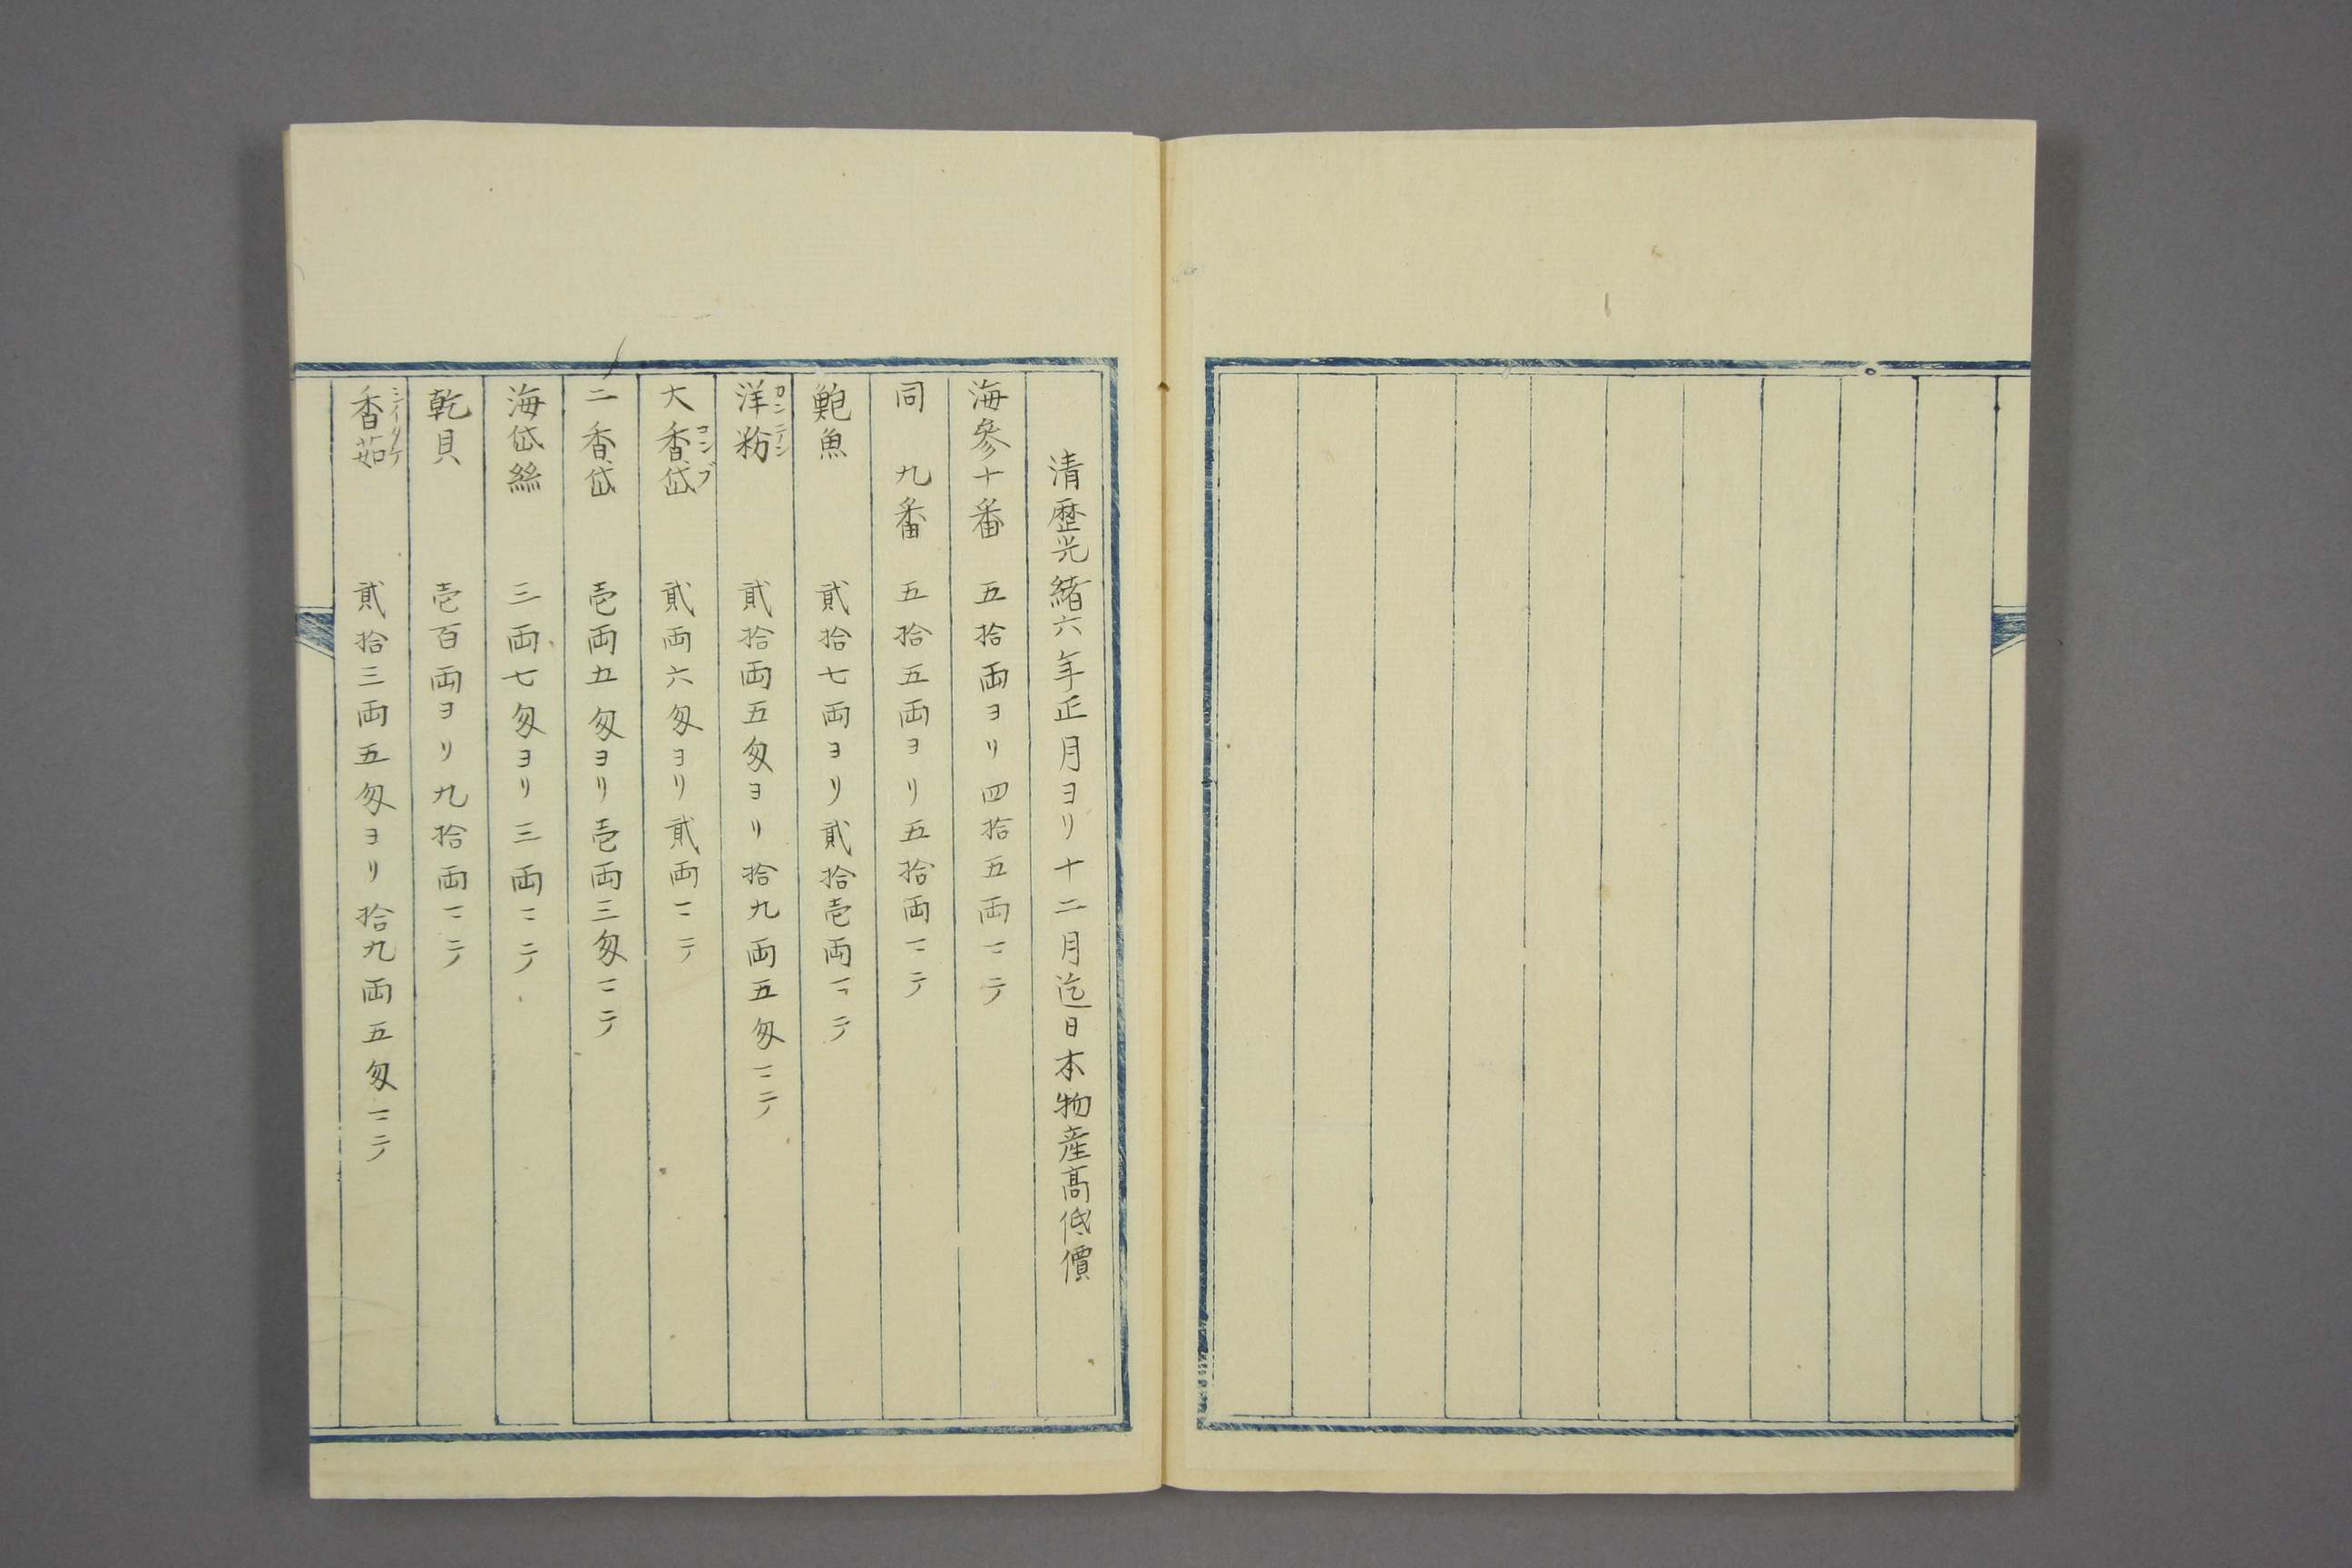 清歴光緒六年正月ヨリ十二月迄日本物産髙低價
海參十番　五拾両ヨリ四拾五両ニテ
同　九番　五拾五両ヨリ五拾両ニテ
鮑魚　貳拾七両ヨリ貳拾壱両ニテ
洋粉　貳拾両五匁ヨリ拾九両五匁ニテ
カンテン
大香岱　貳両六匁ヨリ貳両ニテ
コンブ
二香岱　壱両五匁ヨリ壱両三匁ニテ
海岱絲　三両七匁ヨリ三両ニテ
乾貝　壱百両ヨリ九拾両ニテ
香茹　貳拾三両五匁ヨリ拾九両五匁ニテ